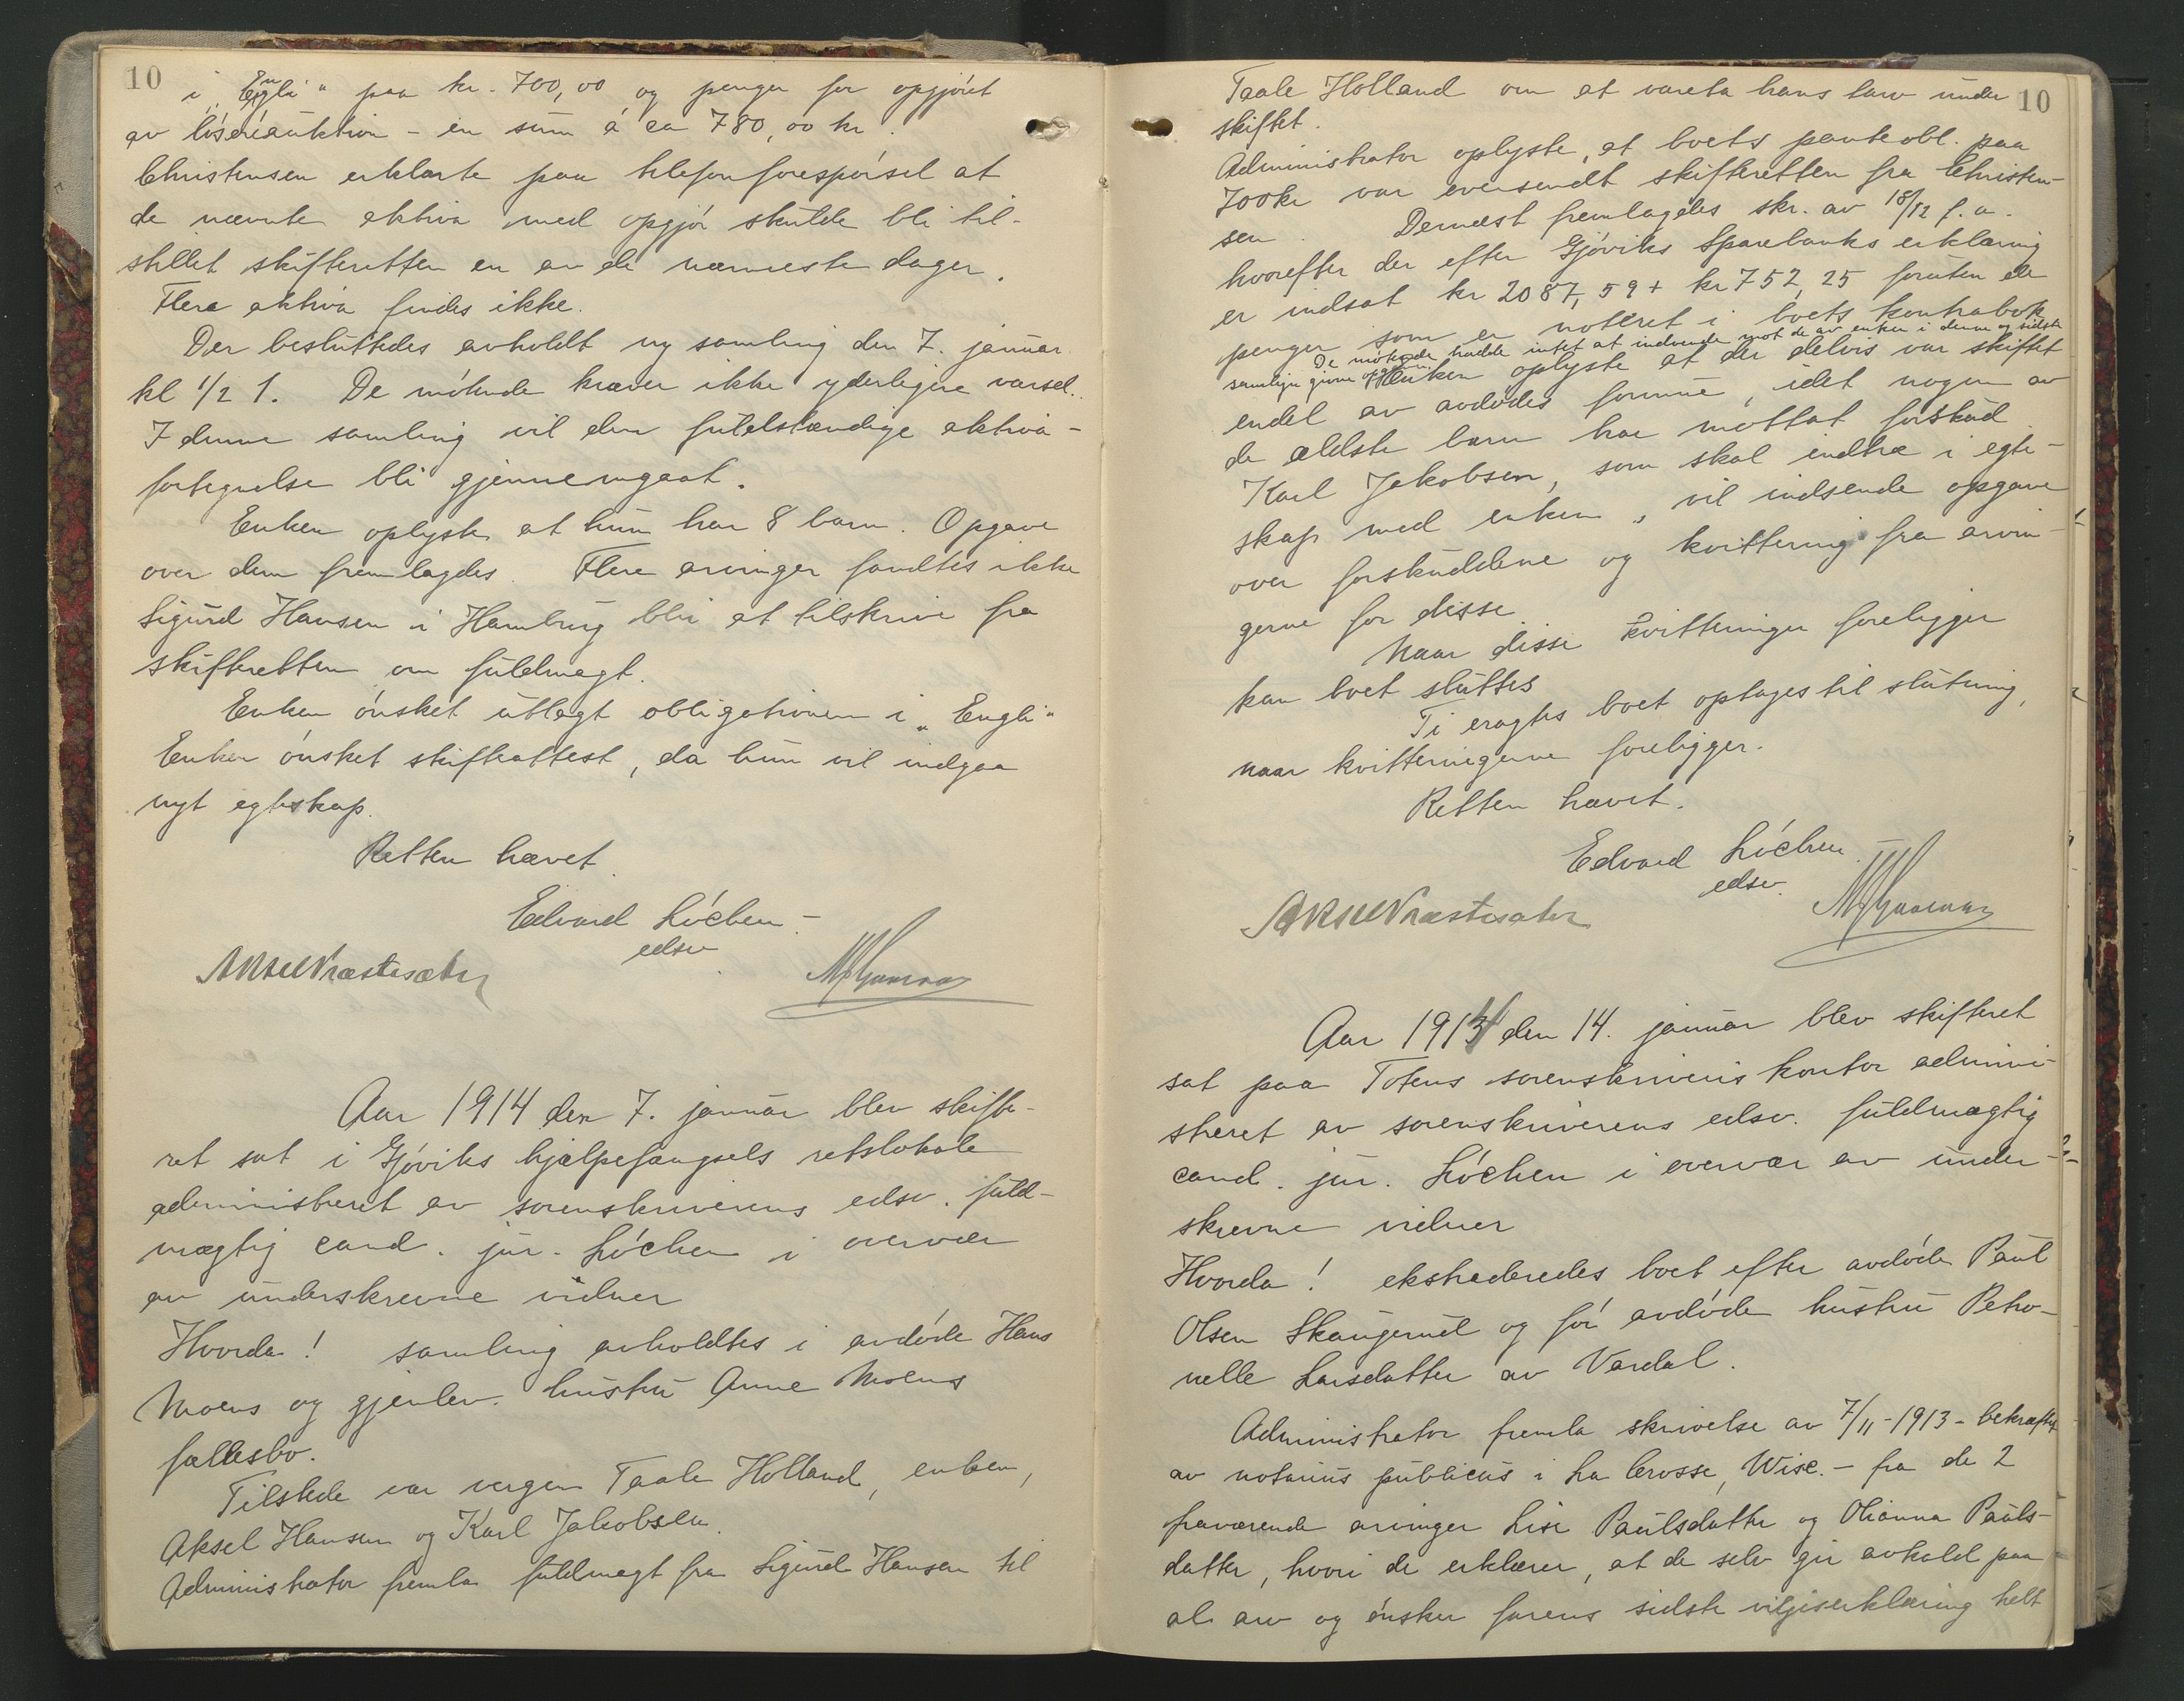 10
i "Engli" paa kr. 700,00 og penger for opgjöret
av lösöreauktion - en sum á ca 780,00 kr.
Christensen erklærte paa telefonforespörsel at
de nævnte aktiva med opgjör skulde bli til-
stillet skifteretten en av de nærmeste dager.
Flere aktiva findes ikke.
Der besluttedes avholdt ny samling den 7. januar
kl 1/2 1. De mötende kræver ikke yderligere varsel.
I denne samling vil den fuldstændige aktiva-
fortegnelse bli gjennemgaat.
Enken oplyste at hun har 8 barn. Opgave
over dem fremlagdes. Flere arvinger fandtes ikke
Sigurd Hansen i Hamburg blir at tilskrive fra
skifteretten om fuldmagt.
Enken önsket utlagt obligationen i "Engli"
Enken önsket skifteattest, da hun vil indgaa
nyt egteskap.
Retten hævet.
Edvard Löchen
edsv.
Aksel Næstesæter
Aar 1914 den 7. januar blev skifte-
ret sat i Gjöviks hjælpefængsels retslokale
administreret av sorenskriverens edsv. fuld-
mægtig cand. jur. Löchen i overvær
av underskrevne vidner
Hvorda! samling avholdtes i avdöde Hans
Moens og gjenlev. hustru Anne Moens
fællesbo.
Tilstede var vergen Taale Holland, enken,
Aksel Hansen og Karl Jakobsen.
Administrator fremla fuldmagt fra Sigurd Hansen til
10
Taale Holland om at vareta hans tarv under
skiftet.
Administrator oplyste, at boets panteobl. paa
700kr var oversendt skifteretten fra Christen-
sen. Dernæst fremlagdes skr. av 18/12 f.a.
hvorefter der efter Gjöviks Sparebanks erklæring
er indsat kr 2087,59 + kr 752,25 foruten de
penger som er noteret i boets kontrabok
De mötende hadde intet at indvende mot de av enken i denne og sidste
samling givne opgaver. Enken oplyste at der delvis var skiftet
endel av avdödes formue, idet nogen av
de ældste barn har mottat forskud
Karl Jakobsen, som skal indtræ i egte-
skap med enken, vil indsende opgave
over forskuddene og kvittering fra arvin-
gerne for disse.
Naar disse kvitteringer foreligger
kan boet sluttes
Ti eragtes boet optages til slutning,
naar kvitteringerne foreligger.
Retten hævet.
Edvard Löchen
edsv.
Aksel Næstesæter
Aar 1914 den 14. januar blev skifteret
sat paa Totens sorenskriveris kontor admini-
streret av sorenskriverens edsv. fuldmægtig
cand. jur. Löchen i overvær av under-
skrevne vidner
Hvorda! ekstraderedes boet efter avdöde Paul
Olsen Skaugerud og för avdöde hustru Petro-
nelle Larsdatter av Vardal.
Administrator fremla skrivelse av 7/11-1913 - bekræftet
av notarius publicus i La Crosse, Wisc. - fra de 2
fraværende arvinger Lise Paulsdatter og Olianna Pauls-
datter, hvori de erklærer, at de selv gir avkald paa
al arv og önsker farens sidste viljeserklæring helt